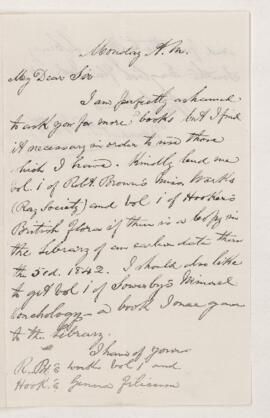 Monday A.M.
My Dear Sir
I am perfectly ashamed
to ask you for more books but I find
it necessary in order to use those
which I have. Kindly lend me
vol. 1 of Robt. Brown's Misc. Works
(Ray Society) and vol 1 of Hooker's
British Flora if there is a copy in
the Library of an earlier date than
the 5 ed. 1842. I should also like
to get vol 1 of Sowerby's Mineral
Conchology - a book I once gave
to the Library.
I have of yours
R. Br.'s works vol 1 and
Hook.'s Genera Filicum